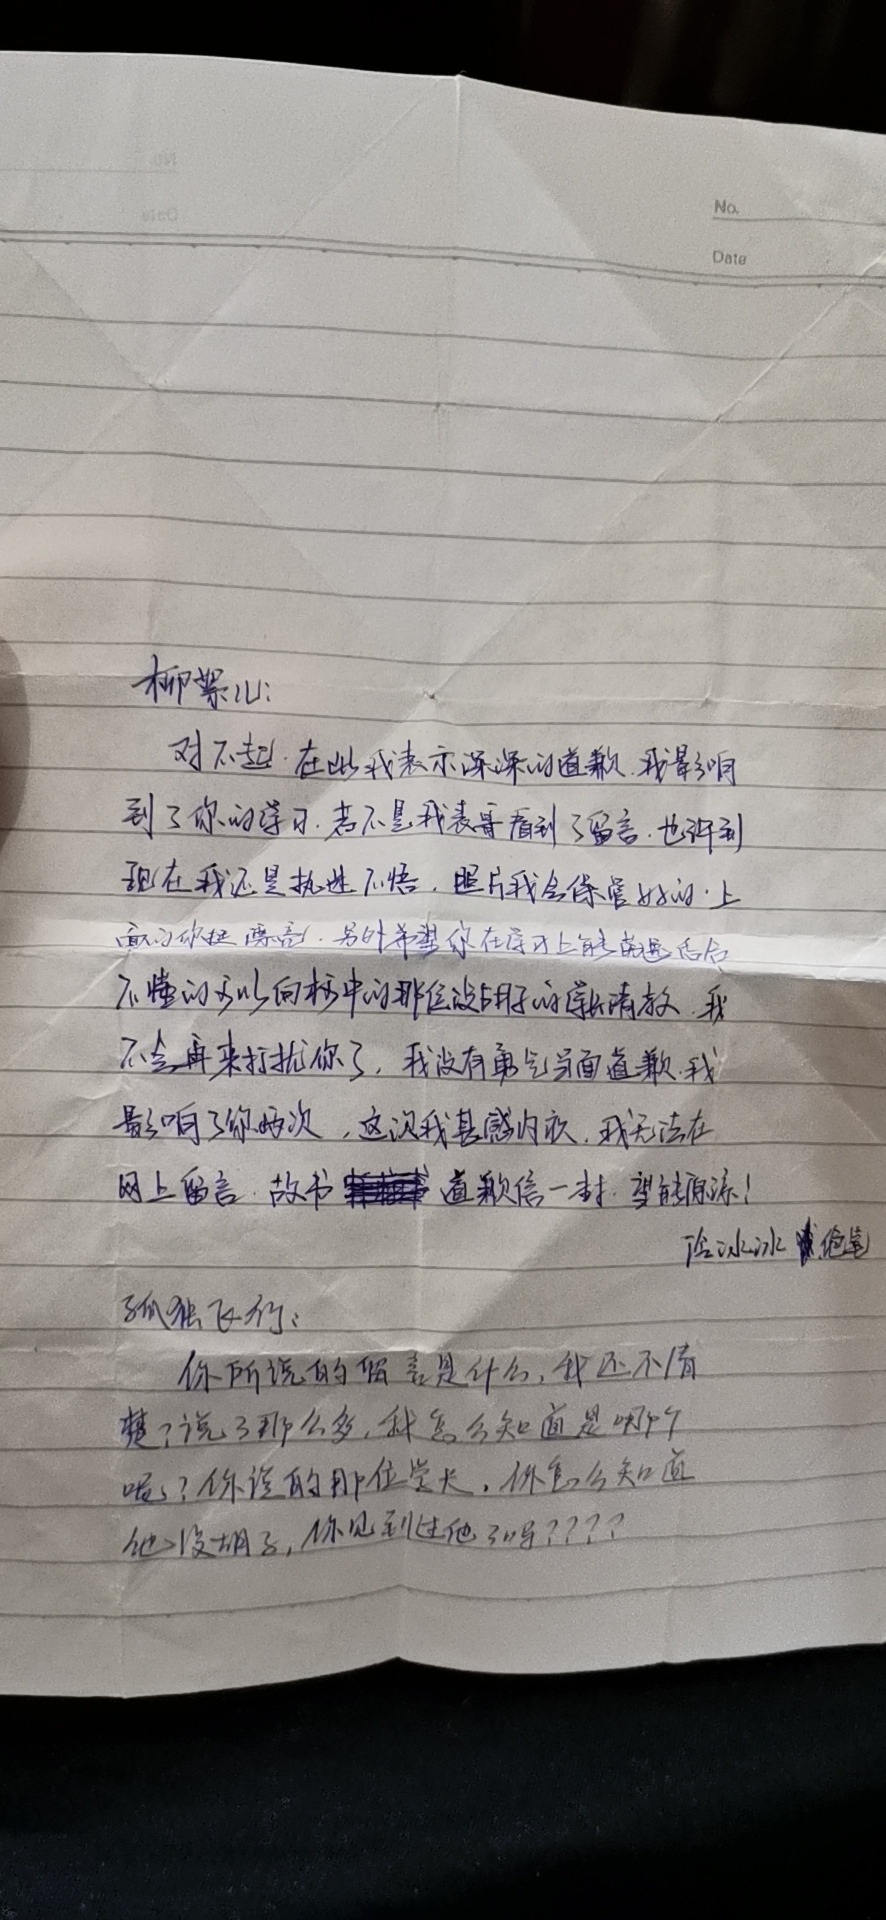 No.
Date
柳絮儿:
对不起.在此我表示深深的道歉.我影响
到了你的学习.若不是我表哥看到了留言.也许到
现在我还是执迷不悟.照片我会保管好的.上
面的你挺漂亮.另外希望你在学习上能
不懂的可以向校中的那位没胡子的学长请教.我
不会再来打扰你了,我没有勇气当面道歉.我
影响了你两次,这次我甚感内疚.我无法在
网上留言.故书道歉信一封.望能原谅!
冷冰冰 绝笔
孤独飞行:
你所说的留言是什么,我还不清
楚?说了那么多,我怎么知道是哪个
呢?你说的那位学长,你怎么知道
他没胡子,你见到过他了吗????